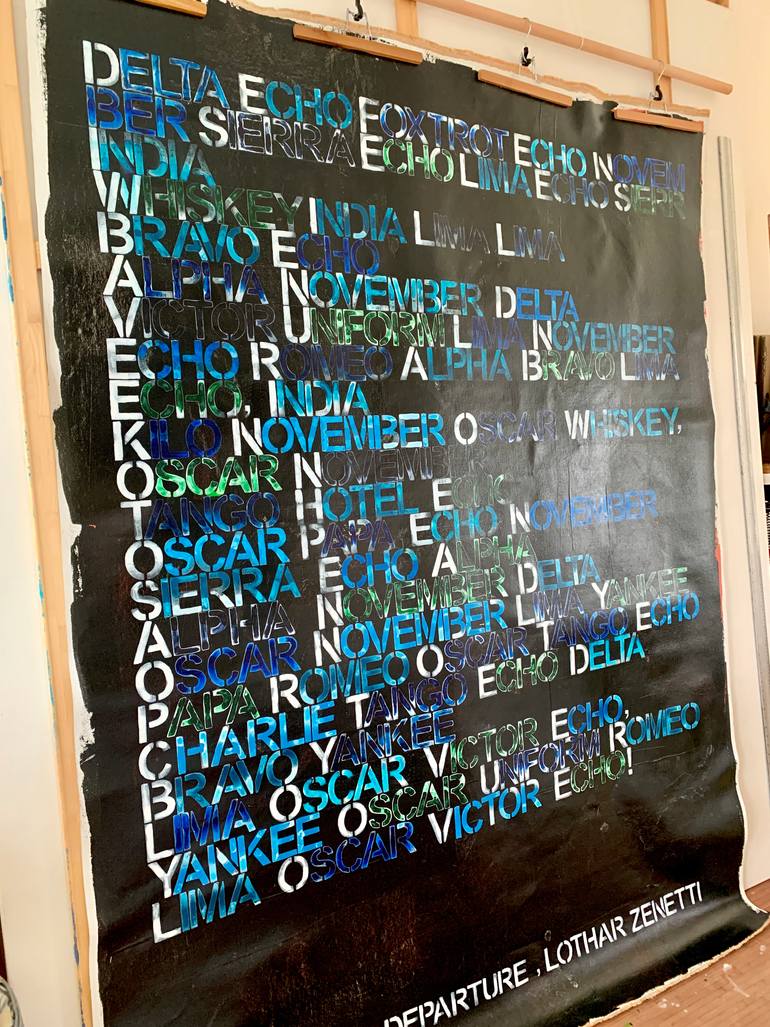 DELTA ECHO FOXTROT ECHO NOVEM
BER SIERRA ECHO LIMA ECHO SIERR
INDIA
WHISKEY INDIA LIMA LIMA
BRAVO ECHO
ALPHA NOVEMBER DELTA
VICTOR UNIFORM LIMA NOVEMBER
ECHO ROMEO ALPHA BRAVO LIMA
ECHO, INDIA
KILO NOVEMBER OSCAR WHISKEY,
OSCAR NOVEMBER
TANGO HOTEL ECHO
OSCAR PAPA ECHO NOVEMBER
SIERRA ECHO ALPHA
ALPHA NOVEMBER DELTA
OSCAR NOVEMBER LIMA YANKEE
PAPA ROMEO OSCAR TANGO ECHO
CHARLIE TANGO ECHO DELTA
BRAVO YANKEE
LIMA OSCAR VICTOR ECHO,
YANKEE OSCAR UNIFORM ROMEO
LIMA OSCAR VICTOR ECHO!
DEPARTURE , LOTHAR ZENETTI